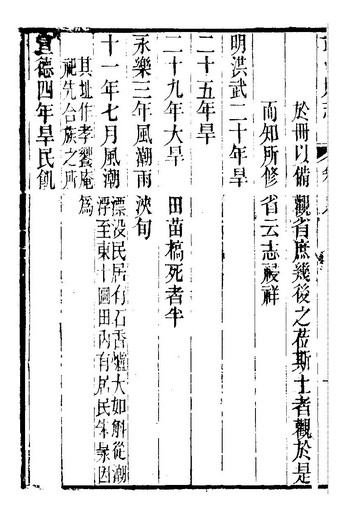 於冊以備觀省庶幾後之莅斯土者觀於是
而知所修省云志祲祥
明洪武二十年旱
二十五年旱
二十九年大旱田苗槁死者半
永樂三年風潮雨浹旬
十一年七月風潮漂沒民居有石香爐大如斛從潮
浮至東十圖田內有居民朱泉因
其址作孝饗庵為
祀先合族之所
宣德四年旱民飢